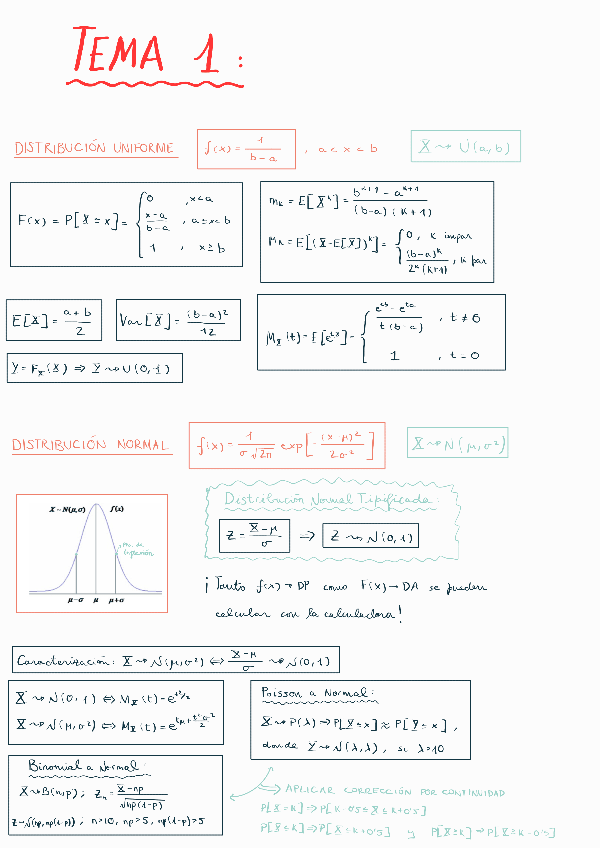 TEMA 1:
DISTRIBUCIÓN UNIFORME f(x) = 1/(b-a) , a < x < b X ⇝ U(a,b)
F(x) = P[X ≤ x] = { 0 , x<a
(x-a)/(b-a) , a≤x<b
1 , x≥b
m_k = E[X^k] = (b^(k+1) - a^(k+1))/((b-a)(k+1))
M_k = E[(X-E[X])^k] = { 0, k impar
(b-a)^k/(2^k(k+1)) , k par
E[X] = (a+b)/2 Var[X] = (b-a)²/12
M_X(t) = E[e^(tX)] = { (e^(tb) - e^(ta))/(t(b-a)) , t ≠ 0
1 , t = 0
Y = F_X(X) ⇒ Y ⇝ U(0,1)
DISTRIBUCIÓN NORMAL f(x) = 1/(σ√2π) exp[-(x-μ)²/2σ²] X ⇝ N(μ,σ²)
X ~ N(μ,σ) f(x)
Pto. de Inflexión
μ-σ μ μ+σ
Distribución Normal Tipificada:
Z = (X-μ)/σ ⇒ Z ⇝ N(0,1)
¡Tanto f(x) → DP como F(x) → DA se pueden
calcular con la calculadora!
Caracterización: X ⇝ N(μ,σ²) ⇔ (X-μ)/σ ⇝ N(0,1)
X ⇝ N(0,1) ⇔ M_X(t) = e^(t²/2)
X ⇝ N(μ,σ²) ⇔ M_X(t) = e^(tμ + t²σ²/2)
Poisson a Normal:
X ⇝ P(λ) ⇒ P[X ≤ x] ≈ P[Y ≤ x] ,
donde Y ⇝ N(λ,λ), si λ>10
Binomial a Normal:
X ⇝ B(n,p) ; Z_n = (X-np)/√(np(1-p))
Z ⇝ N(np,np(1-p)) ; n>10, np>5, np(1-p)>5
⇒ APLICAR CORRECCIÓN POR CONTINUIDAD
P[X=k] ⇒ P[k-0'5 ≤ X ≤ k+0'5]
P[X≤k] ⇒ P[X ≤ k+0'5] y P[X≥k] ⇒ P[X ≥ k-0'5]